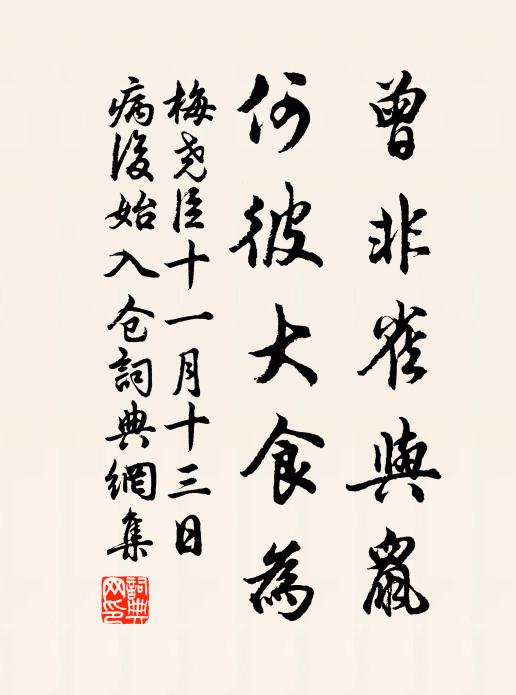 曾非雀與鼠
何彼大食為
梅尧臣十一月十三日
病後始入仓詞典網集
詞典网印